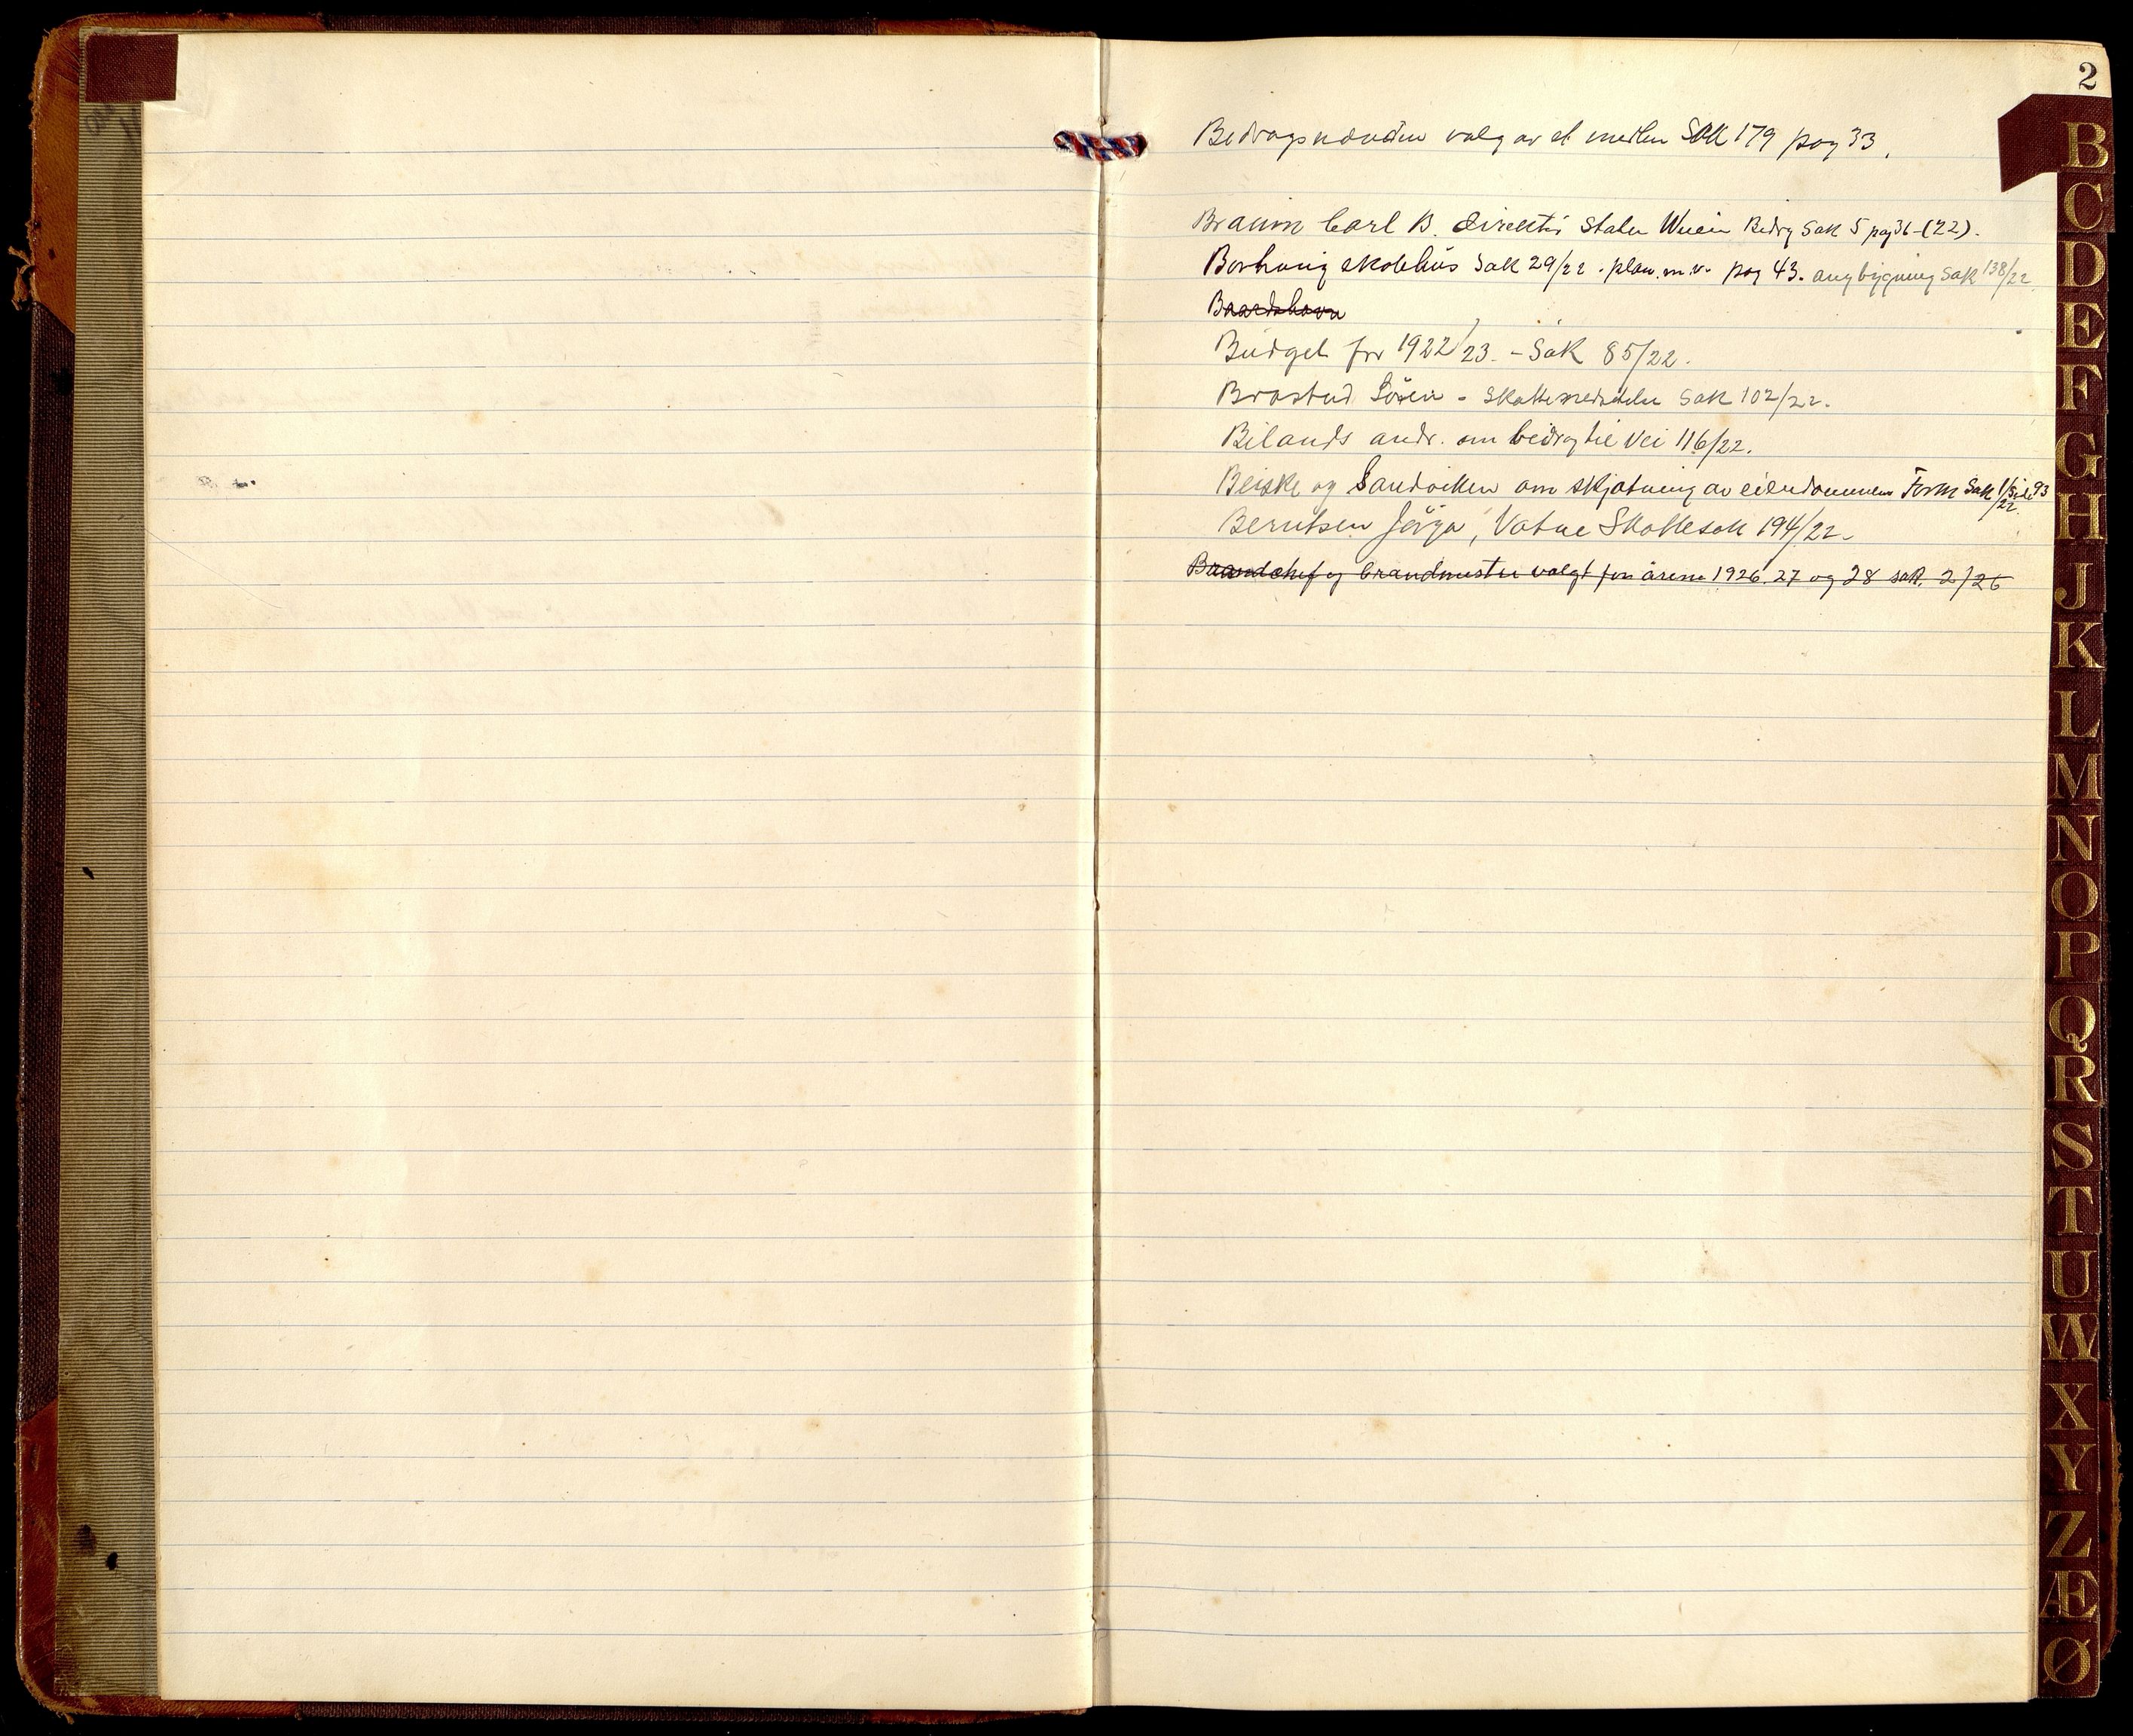 2
Bidragsnævnden valg av et medlem Sak 179 pag 33.
Braun Carl B. direktör Staten Bidrag Sak 5 pag 36 - (22).
Borhaug skolehus Sak 29/22. plan. m.v. pag 43. ang bygning Sak 138/22
Baardshavn
Budget for 1922/23. - Sak 85/22.
Brastad Sören - Skattemeddelelse Sak 102/22.
Bilands andr. om bidrag til vei 116/22.
Beiske og Sandviken om skjøtning av eiendommen Form Sak 1/22 Side 93
Berntsen Jörgen, Vatne Skattesak 194/22.
Brandchef og brandmester valgt for årene 1926. 27 og 28 sak. 2/26
B
C
D
E
F
G
H
J
K
L
M
N
O
P
Q
R
S
T
U
W
X
Y
Z
Æ
Ø